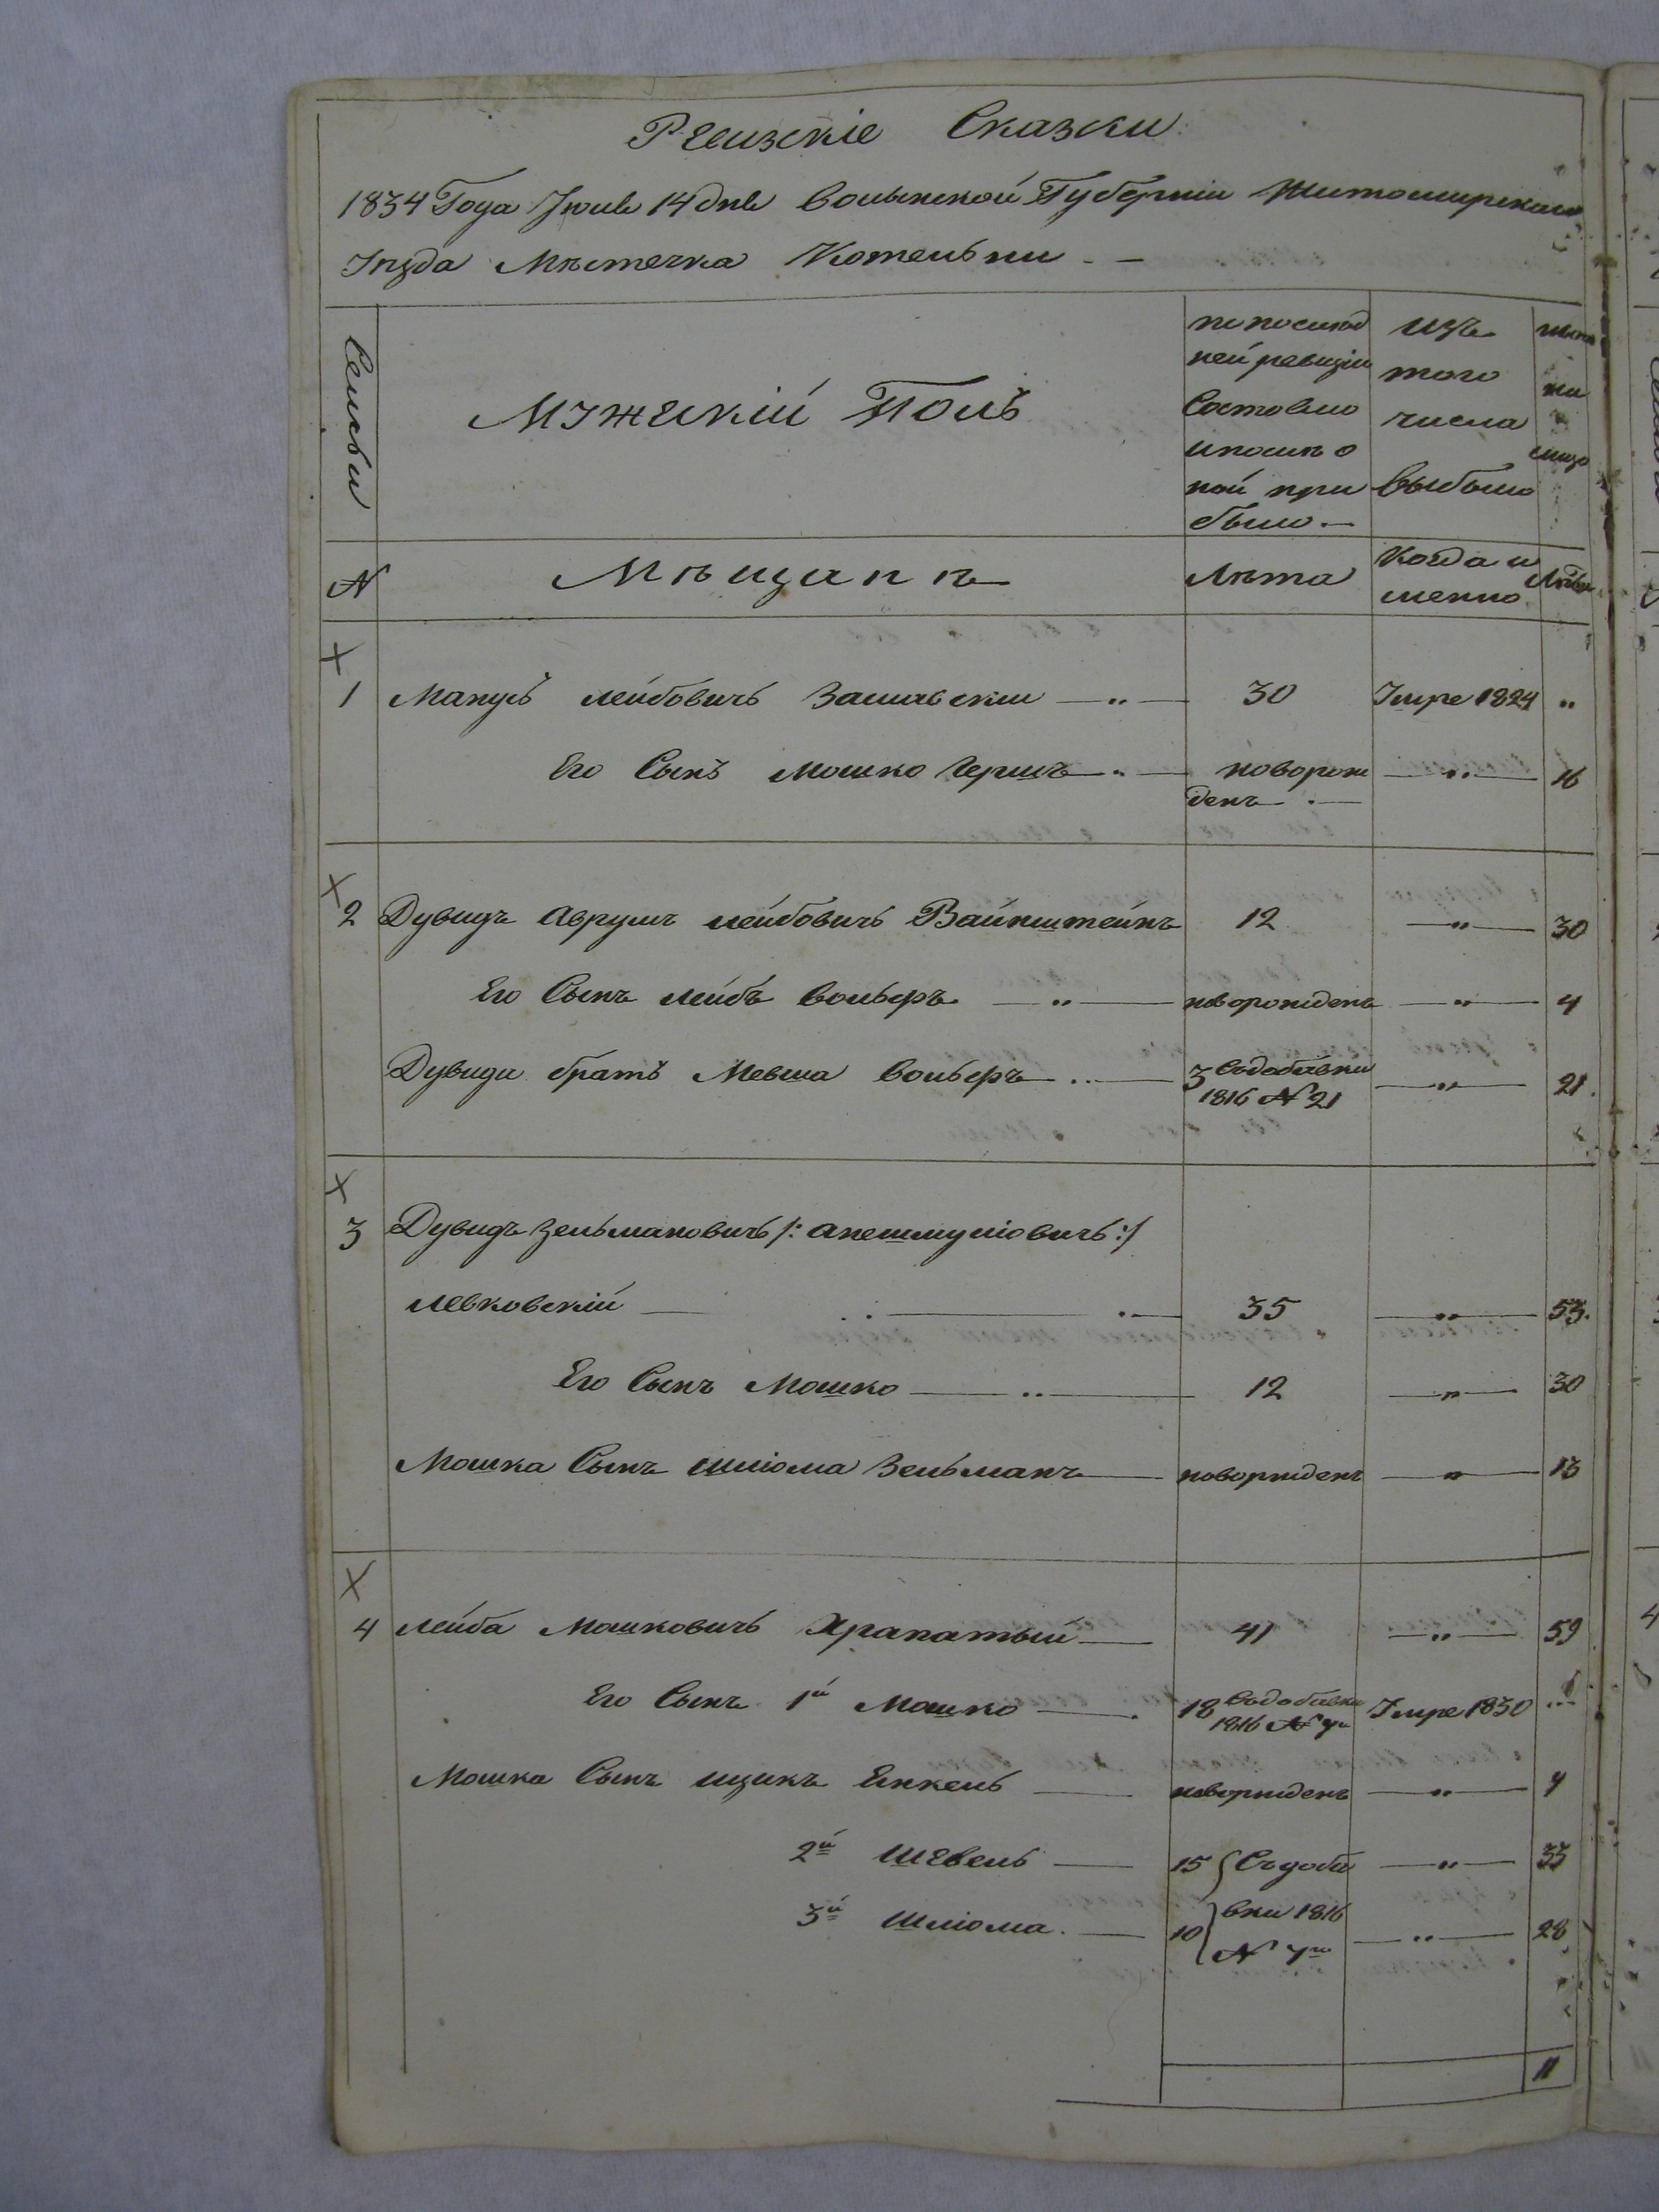 Ревизскіе Сказки
1834 Года Іюня 14 дня Волынской Губерніи Житомирскаго
Уѣзда Мѣстечка Котельни - -
Семьи
Мужескій Полъ
по послѣд
ней ревизіи
Состояло
и послѣ о
ной при
было. —
изъ
того
числа
выбыло
нынѣ
на
лицо
№
Мѣщанъ
Лѣта
Когда и
менно
Лѣта
1 Манусъ Лейбовичъ Заславскій — „ — 30 Умре 1824 „
Его Сынъ Мошко Гершъ — „ — новорож — „ — 16
денъ. —
2 Дувидъ Аврумъ Лейбовичъ Вайнштейнъ 12 — „ — 30
Его Сынъ Лейбъ Вольфъ — „ — новорожденъ — „ — 4
Дувида братъ Мевша Вольфъ — „ — 3 Съдобавки — „ — 21.
1816 № 21
3 Дувидъ Зельмановичъ /: анешмуліовичъ :/
Левковскій — „ — „ — 35 — „ — 53.
Его Сынъ Мошко — „ — 12 — „ — 30
Мошка Сынъ Шліома Зельманъ — новорожденъ — „ — 13
4 Лейба Мошковичъ Храпатый — 41 — „ — 59
Его Сынъ 1й Мошко — . 18 Съдобавки Умре 1830 „
1816 № 7го
Мошка Сынъ Ицикъ Енкель — новорожденъ — „ — 4
2й Шевель — 15 Съдоба — „ — 33
3й Шліома. — 10 вки 1816 — „ — 28
№ 7го
11